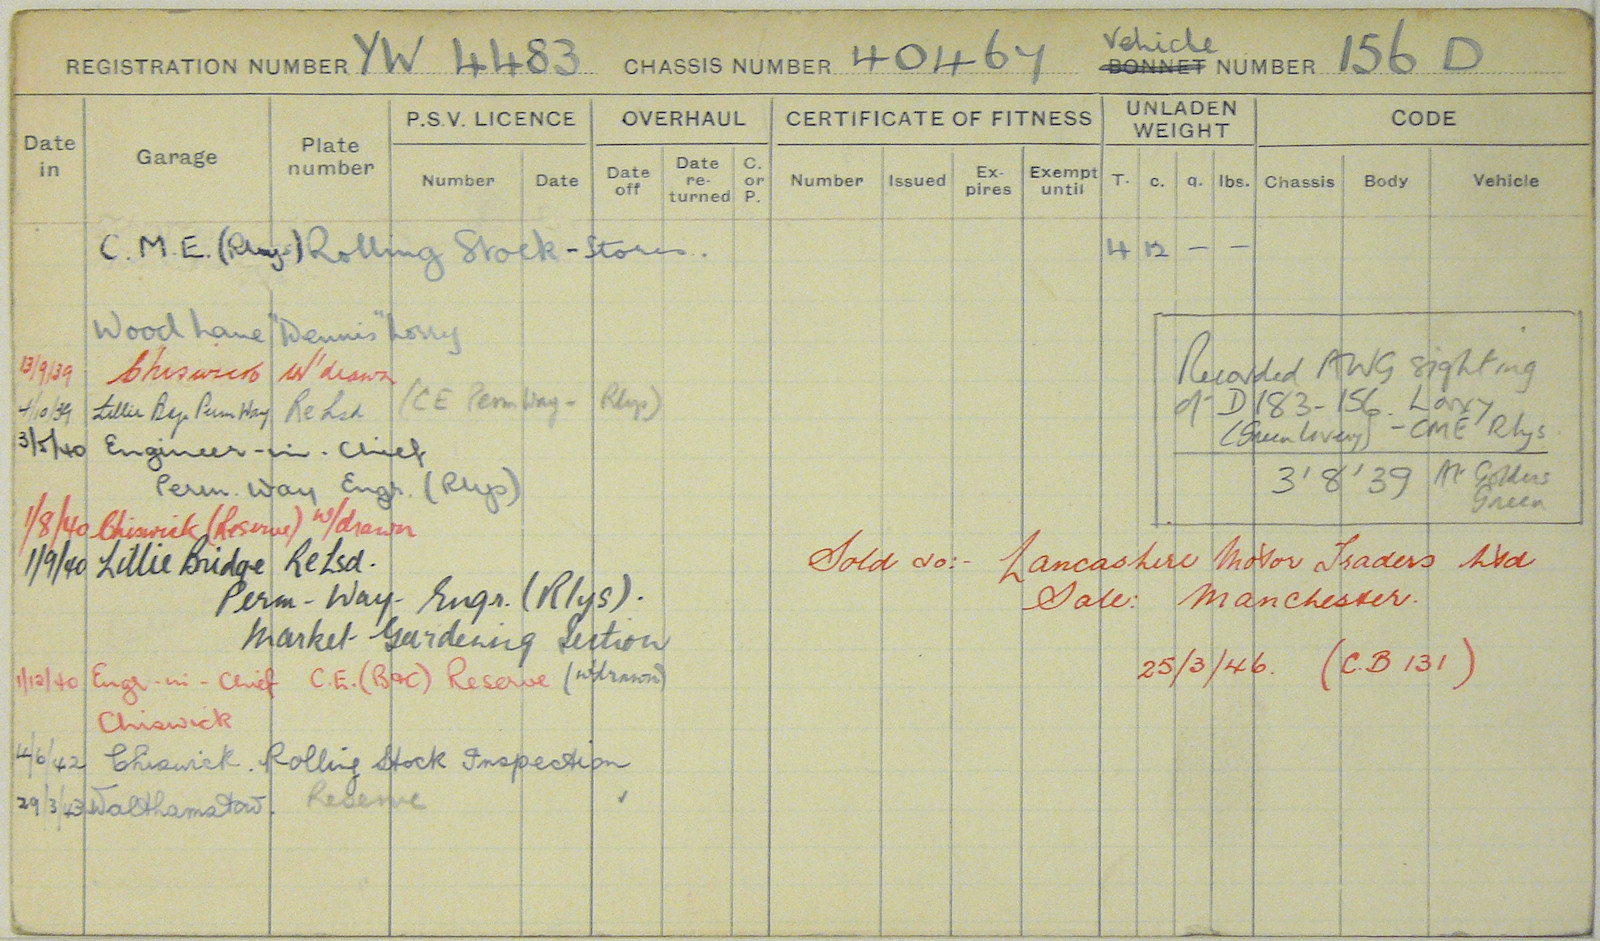 REGISTRATION NUMBER YW 4483 CHASSIS NUMBER 40467 Vehicle BONNET NUMBER 156 D
Date in Garage Plate number P.S.V. LICENCE OVERHAUL CERTIFICATE OF FITNESS UNLADEN WEIGHT CODE
Number Date Date off Date re-turned C. or P. Number Issued Ex-pires Exempt until T. c. q. lbs. Chassis Body Vehicle
C.M.E. (Rlys) Rolling Stock - Stores. 4 12 — —
Wood Lane "Dennis" Lorry
13/9/39 Chiswick W'drawn
4/10/39 Lillie Bdge Perm Way ReLsd (CE Perm Way - Rlys)
3/5/40 Engineer-in-Chief
Perm. Way Engr. (Rlys)
1/8/40 Chiswick (Reserve) w/drawn
1/9/40 Lillie Bridge ReLsd.
Perm-Way- Engr. (Rlys).
Market Gardening Section
1/12/40 Engr-in-Chief C.E. (B&C) Reserve (w'drawn)
Chiswick
4/6/42 Chiswick. Rolling Stock Inspection
29/3/43 Walthamstow. Reserve ✓
Recorded AWG sighting
of D183-156. Lorry
(Green livery) - CME Rlys.
3'8'39 At Golders Green
Sold to:- Lancashire Motor Traders Ltd
Sale: Manchester.
25/3/46. (C.B 131)